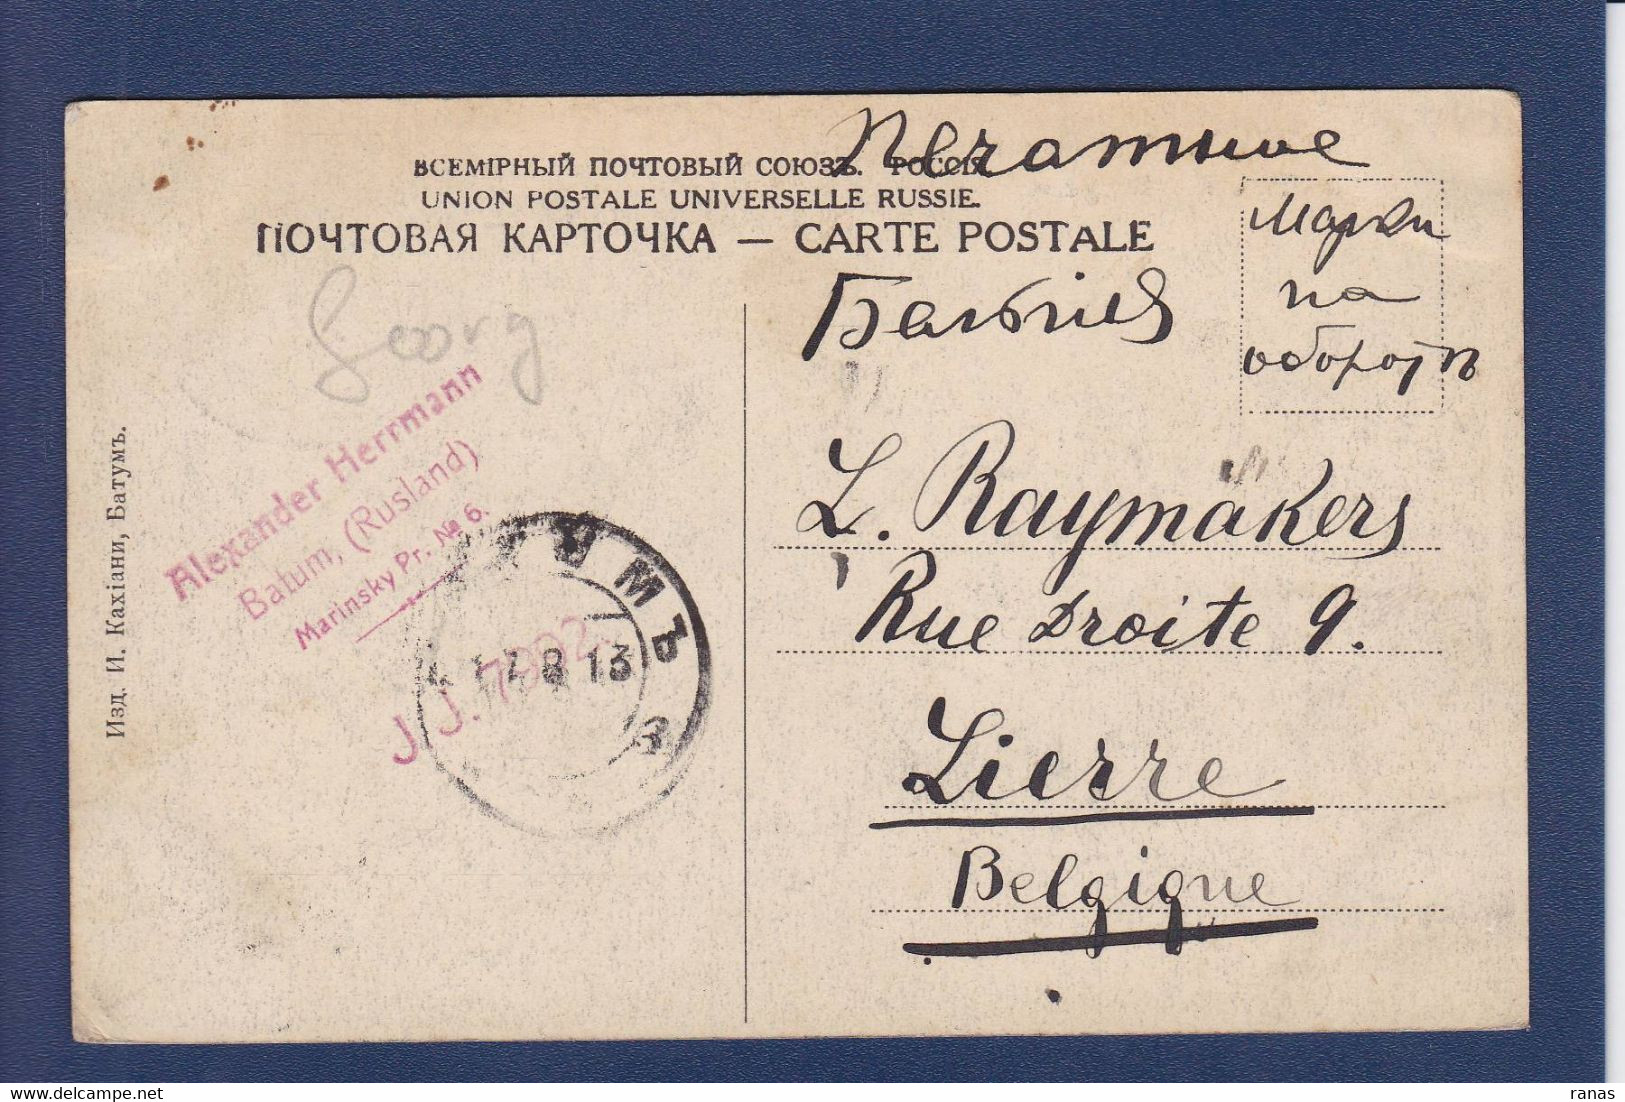 Печатное
ВСЕМІРНЫЙ ПОЧТОВЫЙ СОЮЗЪ. РОССІЯ.
UNION POSTALE UNIVERSELLE RUSSIE.
ПОЧТОВАЯ КАРТОЧКА — CARTE POSTALE
Марки
на
оборотѣ
Бельгія
Georg
Alexander Herrmann
Batum, (Rusland)
Marinsky Pr. № 6.
J. J. 7992.
17 8 13
Изд. И. Кахіани, Батумъ.
L. Raymakers
Rue Droite 9.
Lierre
Belgique
ranas